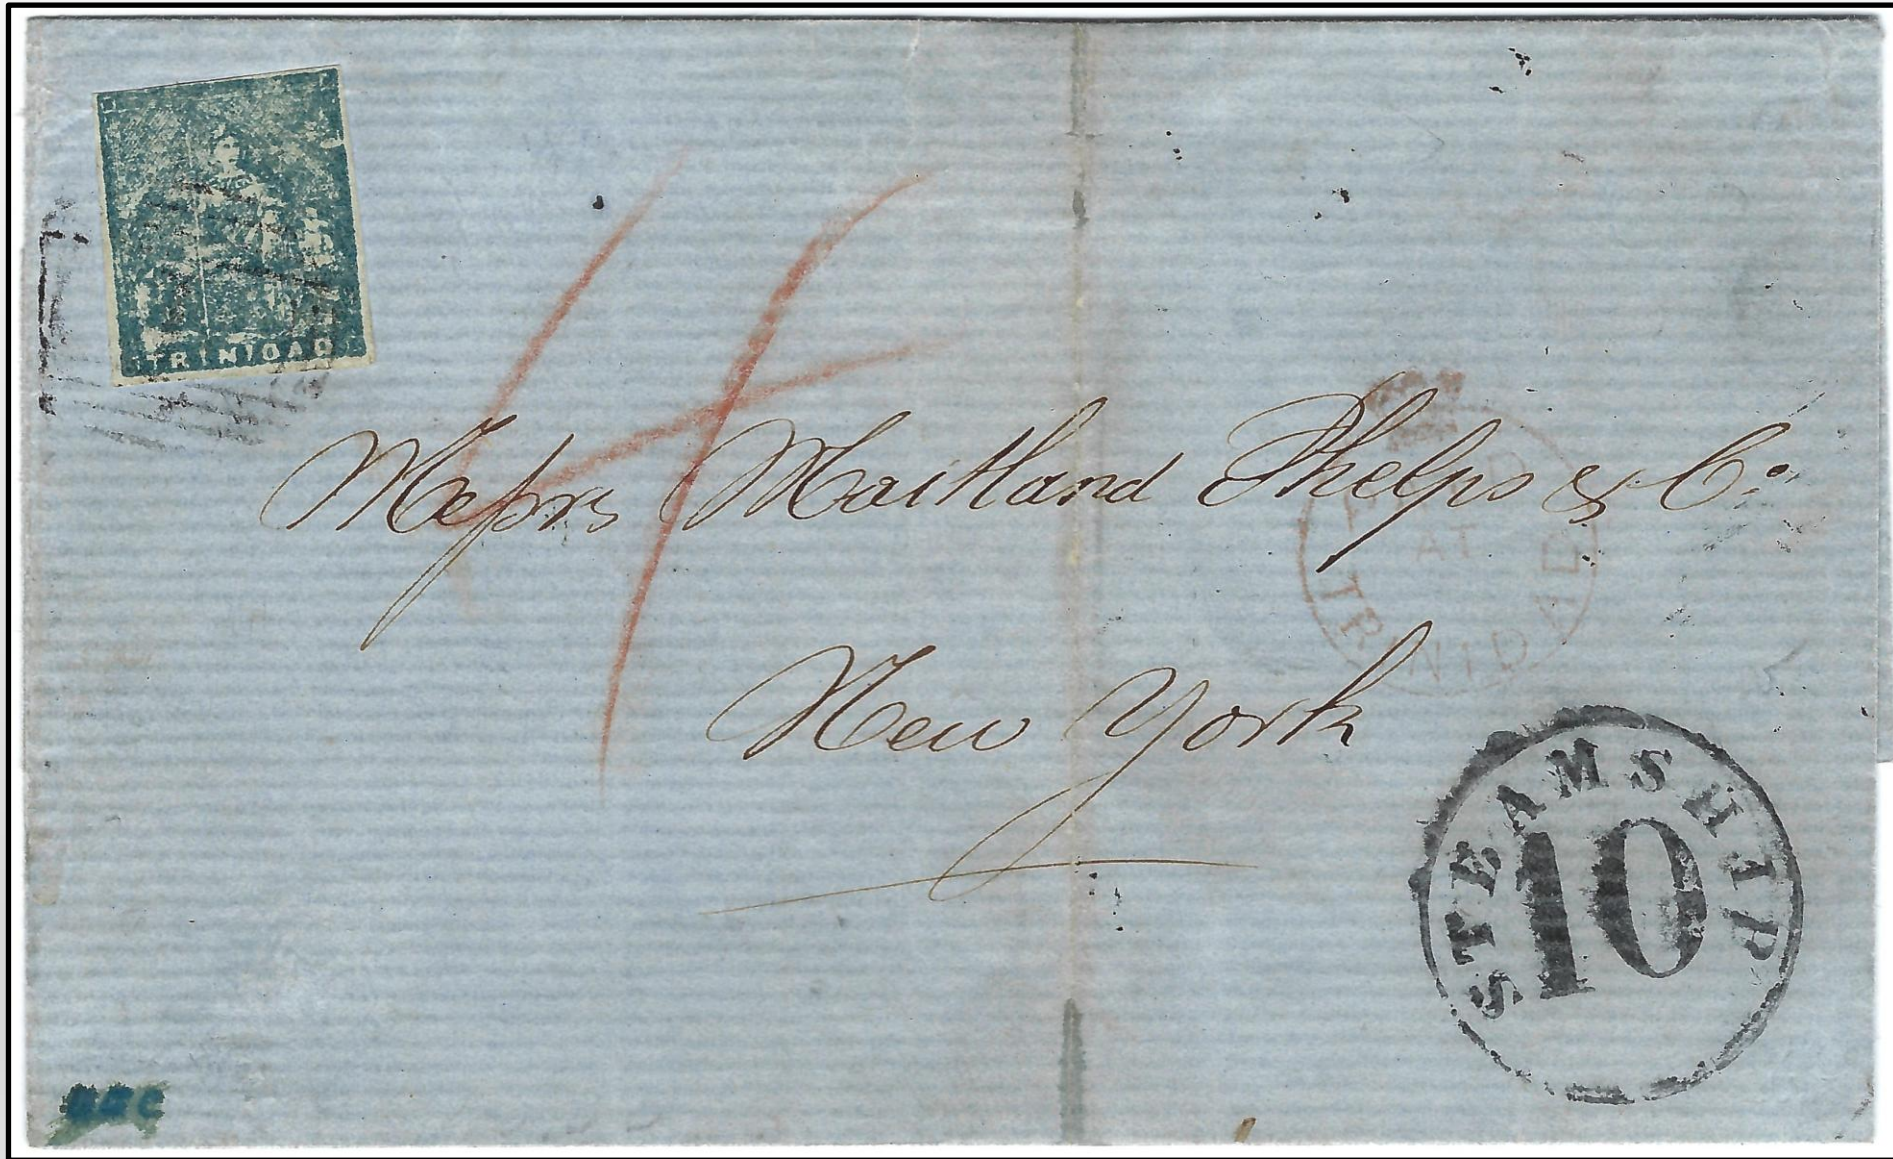 TRINIDAD
4
Messrs Maitland Phelps & Co
PAID
AT
TRINIDAD
New York
STEAMSHIP
10